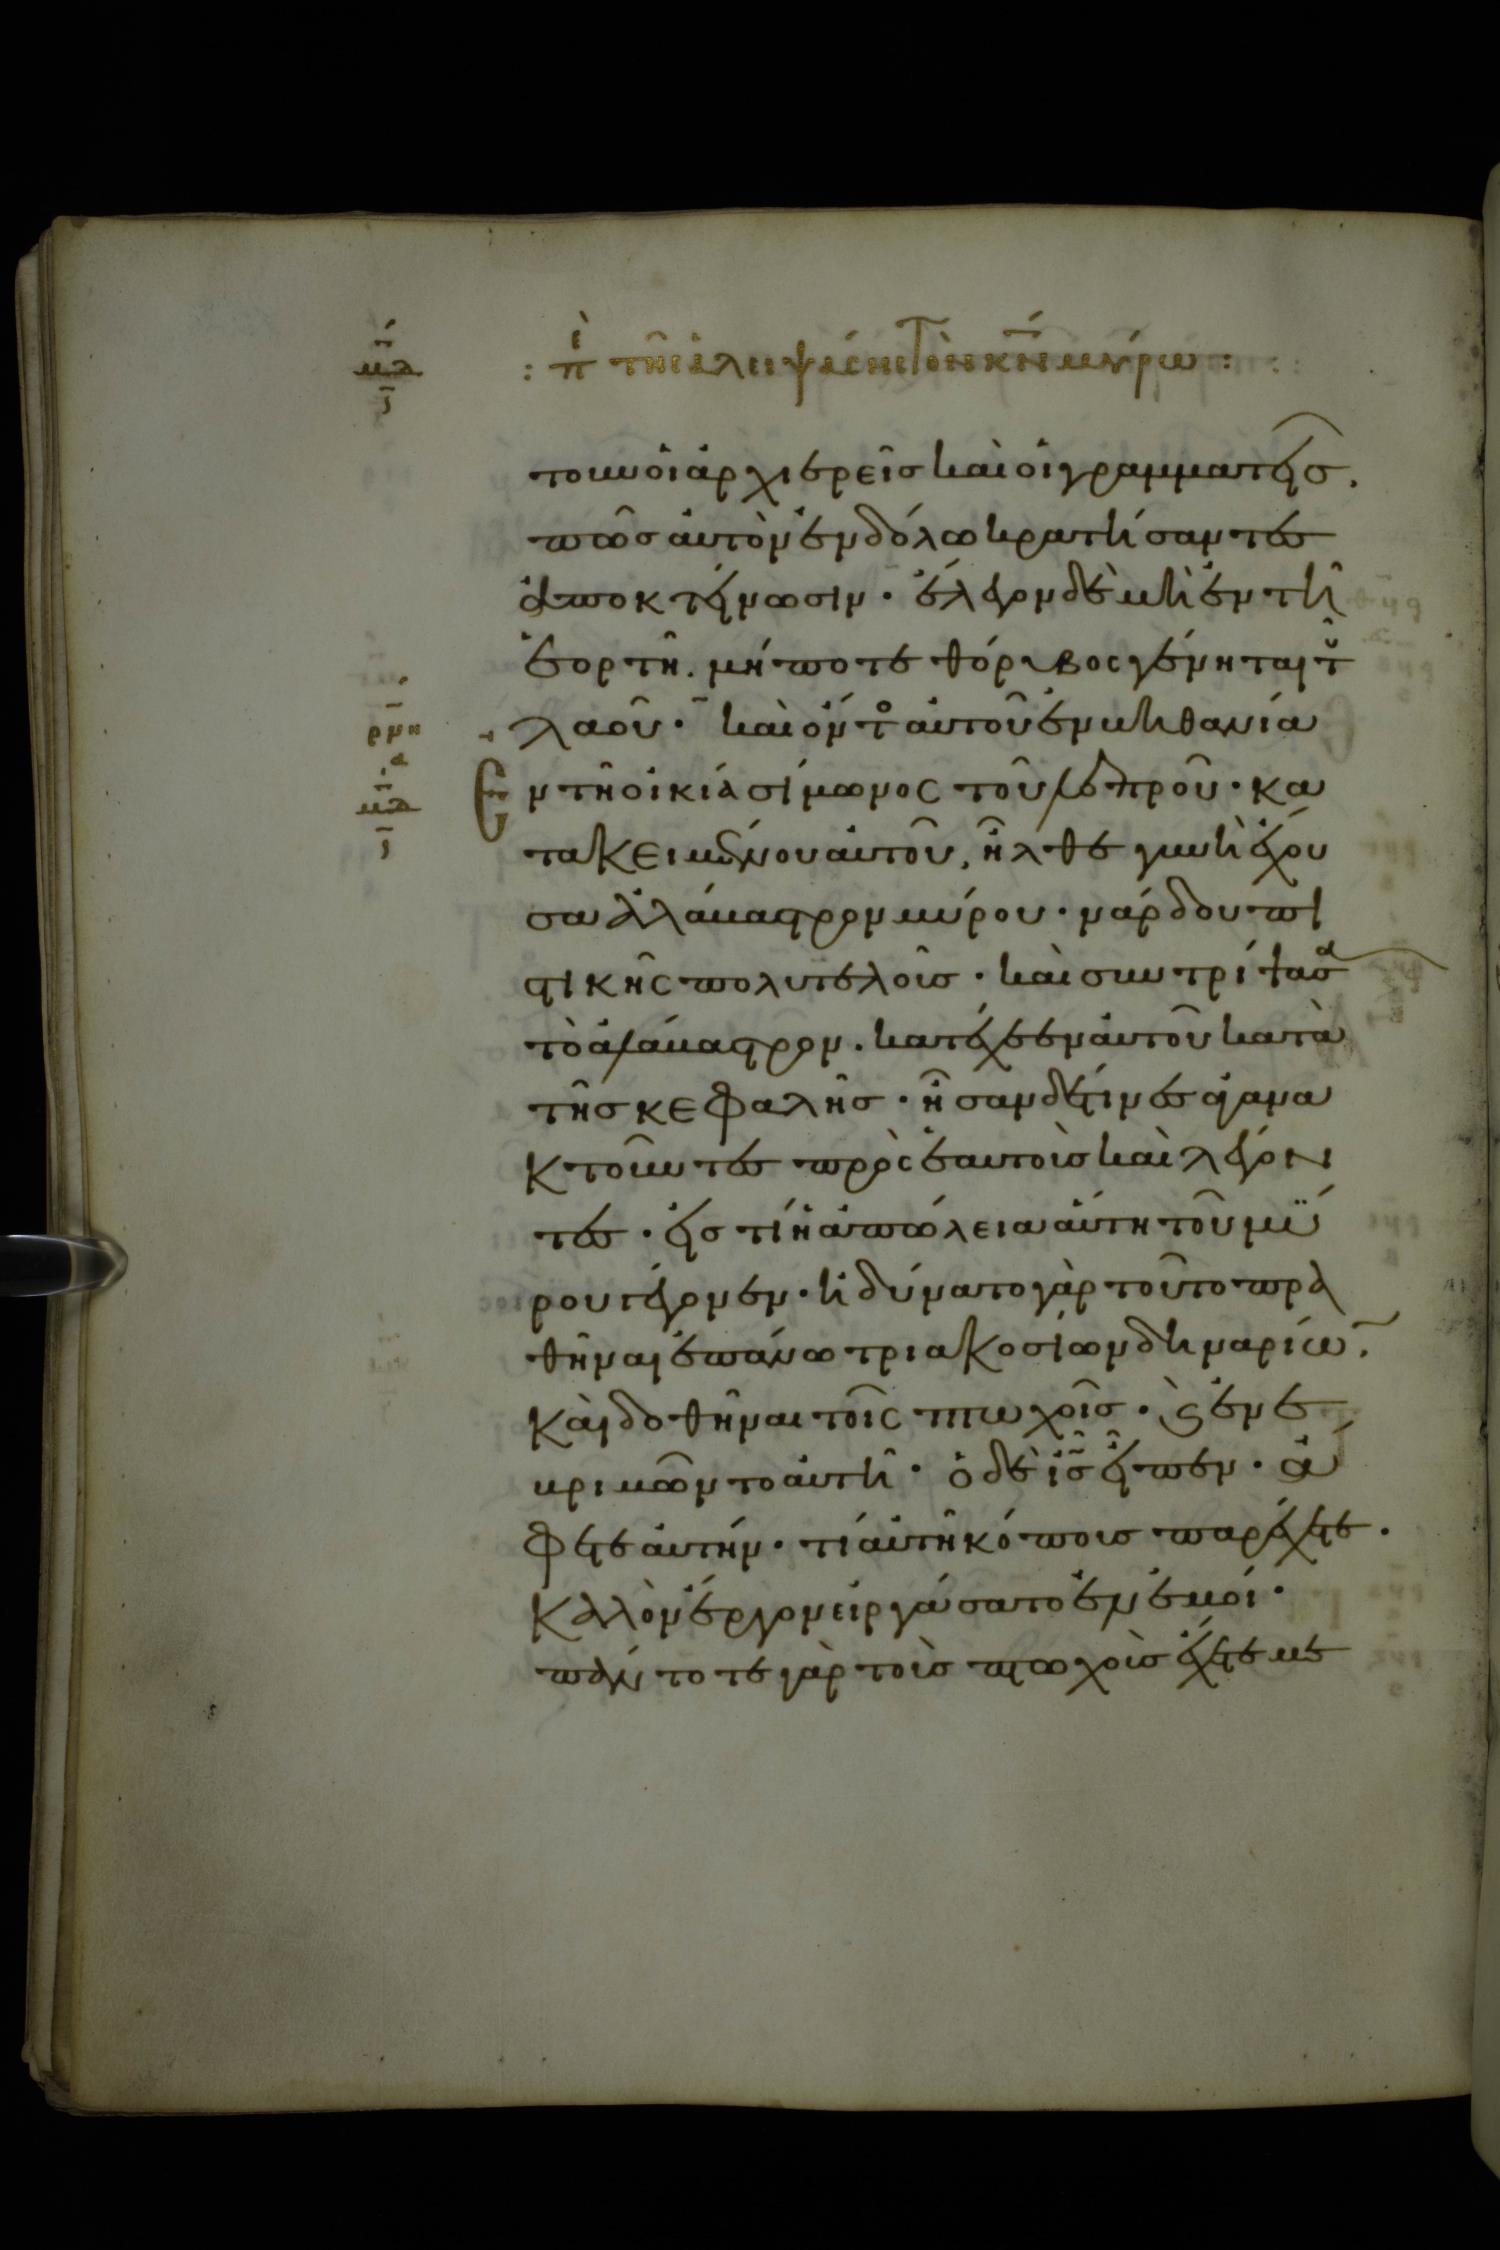 μδ
ι
: πὶ τῆς ἀλειψάσης τὸν κν μύρω :
τουν οἱ ἀρχιερεῖσ καὶ οἱ γραμματεῖσ.
πῶσ αὐτὸν ἐν δόλω κρατήσαντεσ
ἀποκτείνωσιν · ἔλεγον δὲ μὴ ἐν τῆ
ἑορτῆ. μήποτε θόρυβος γένηται τοῦ
λαοῦ · καὶ ὄντος αὐτοῦ ἐν βηθανία
Εν τῆ οἰκία σίμωνος τοῦ λεπροῦ · κα
τακειμένου αὐτοῦ, ἦλθε γυνὴ ἔχου
σα ἀλάβαστρον μύρου · νάρδου πι
στικῆς πολυτελοῦσ · καὶ συντρίψασα
τὸ ἀλάβαστρον. κατέχεεν αὐτοῦ κατὰ
τῆσ κεφαλῆσ · ἦσαν δέ τινεσ ἀγανα
κτοῦντεσ πρὸς ἑαυτοὺσ καὶ λέγον
τεσ · εἰσ τί ἡ ἀπώλεια αὕτη τοῦ μύ
ρου γέγονεν · ἠδύνατο γὰρ τοῦτο πρα
θῆναι ἐπάνω τριακοσίων δηναρίων.
καὶ δοθῆναι τοῖς πτωχοῖσ · ϗ ἐνε
βριμῶντο αὐτῆ · ὁ δὲ ισ εἶπεν · ἄ
φετε αὐτήν · τί αὐτῆ κόπουσ παρέχετε.
καλὸν ἔργον εἰργάσατο ἐν ἐμοί ·
πάντοτε γὰρ τοὺσ πτωχοὺσ ἔχετε με
ρνη
α
μδ
ι